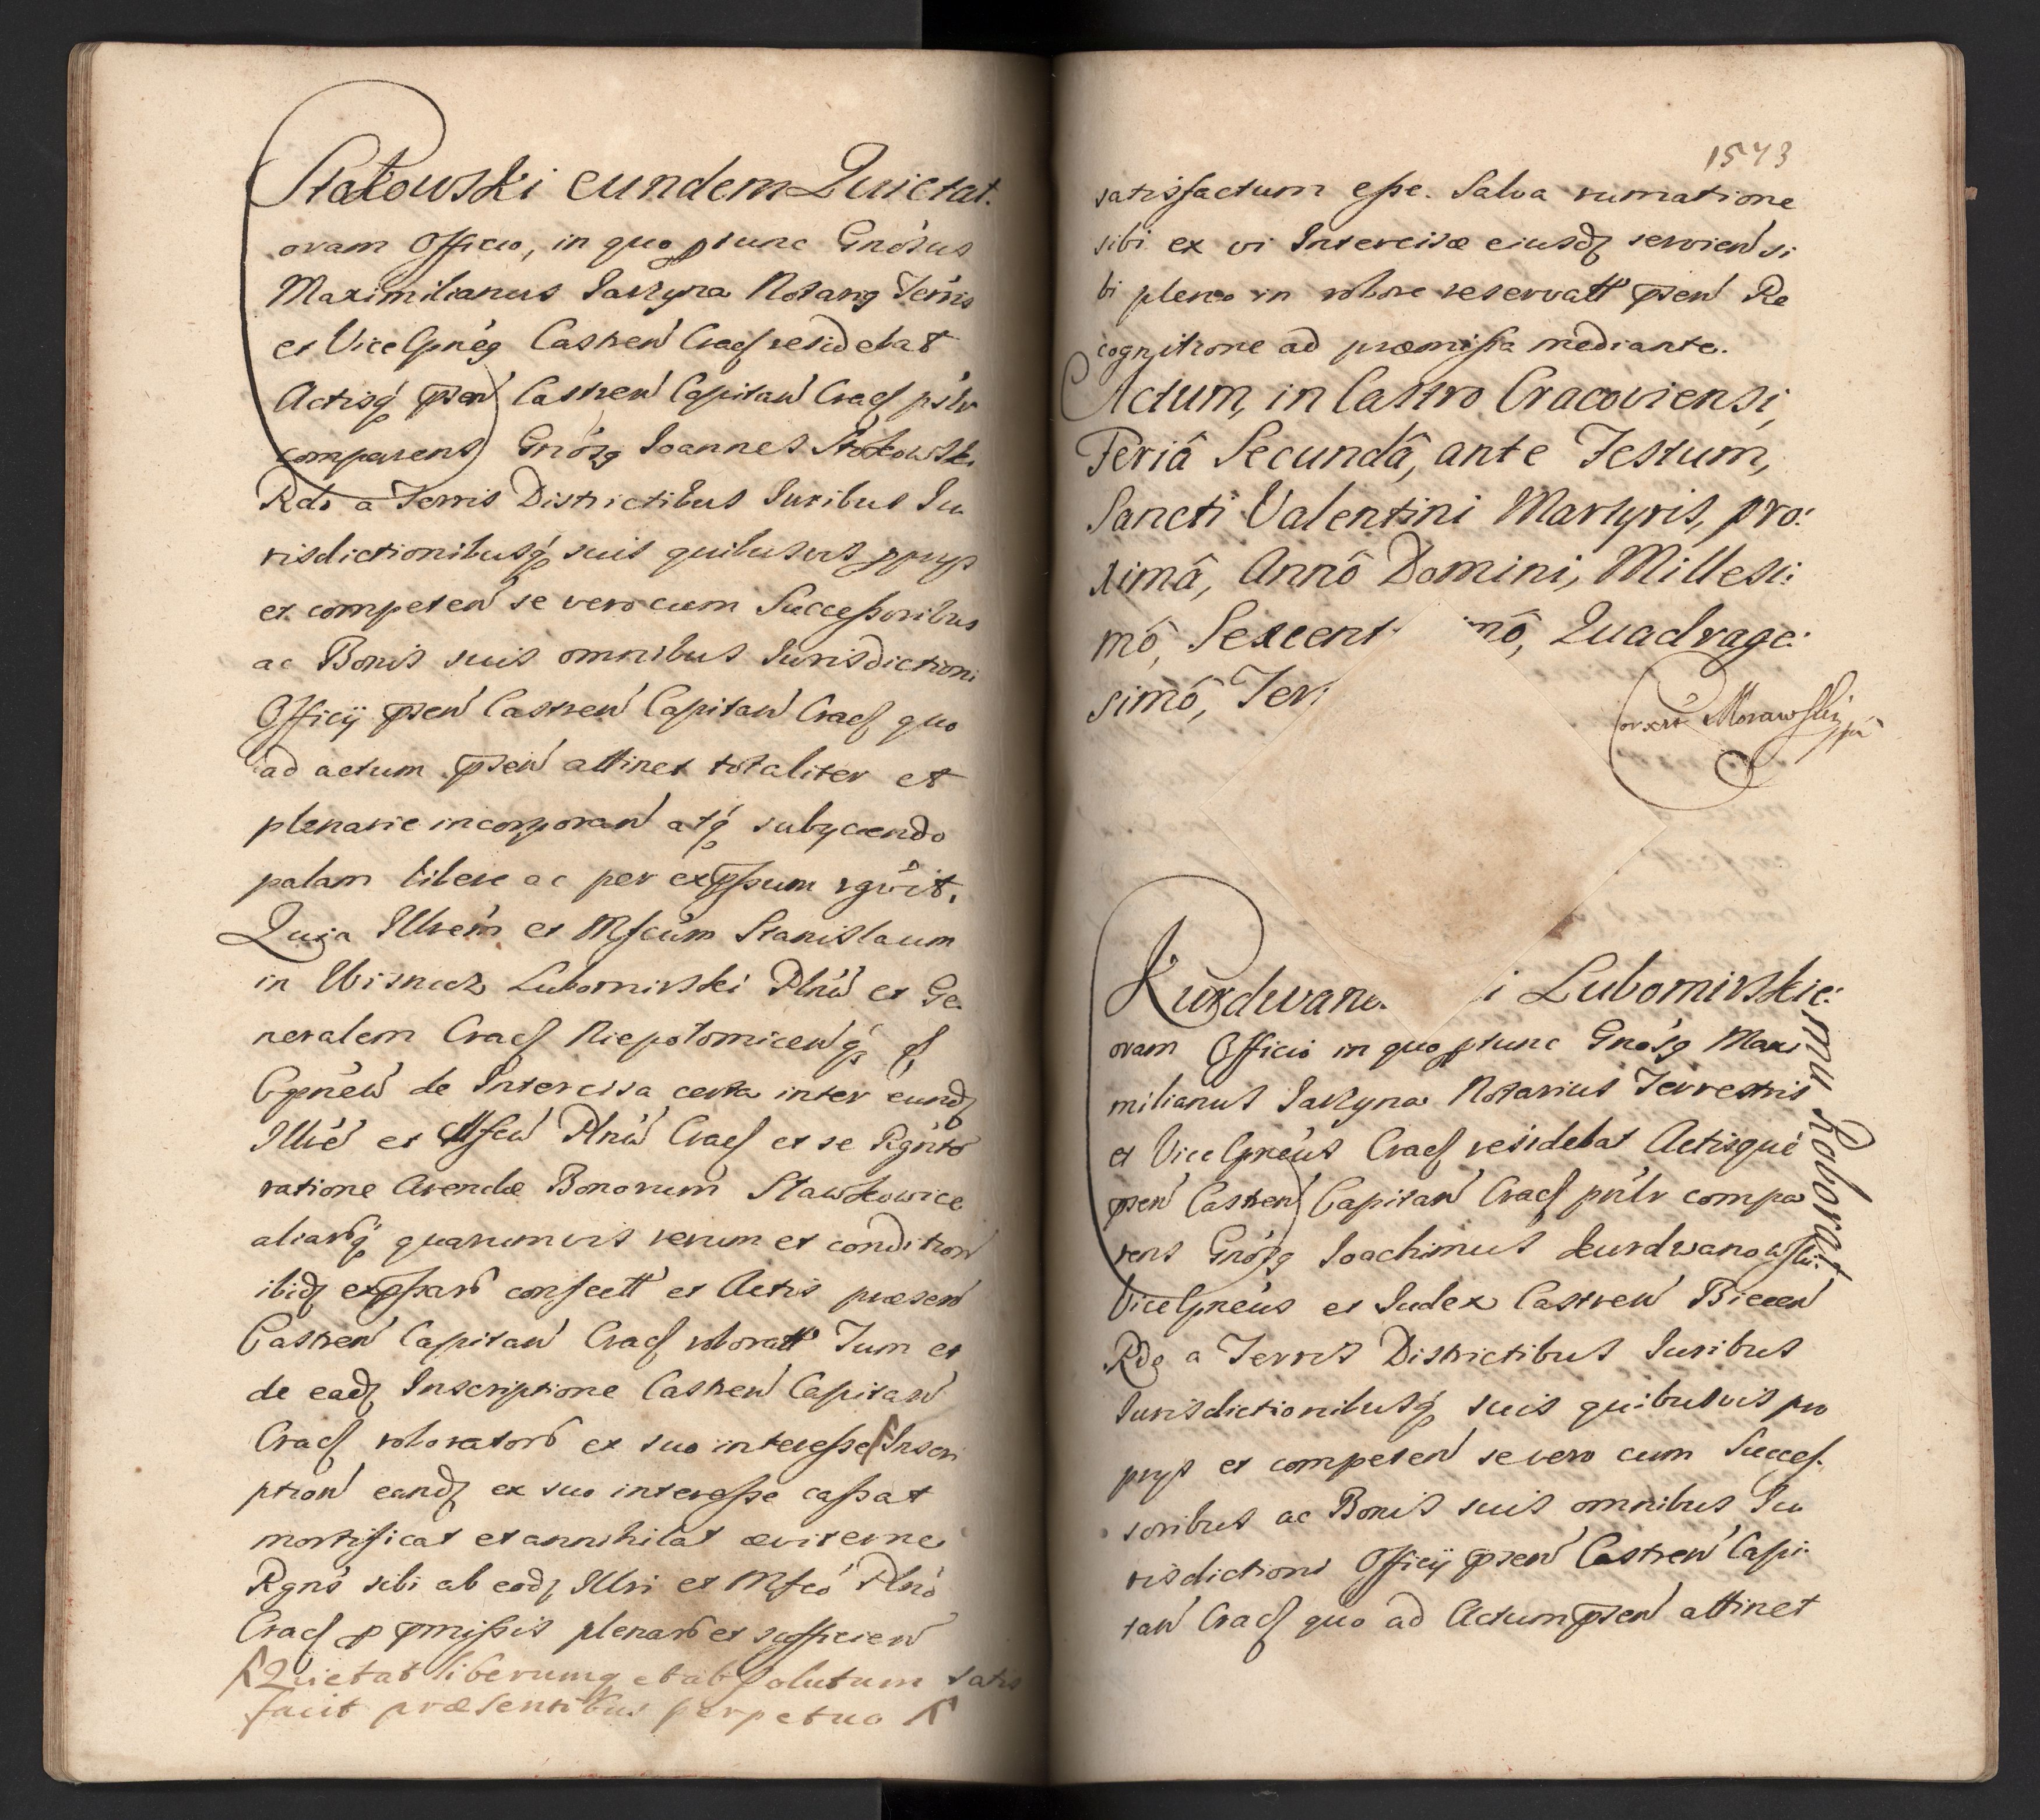 Stokowski eundem Quietat.
oram Officio, in quo ptunc Gnosus
Maximilianus Jarzyna Notarig Terris
et Vice Cpneg Castren Cracf residebat
Actisq pnsen Castren Capitan Cracf pslr
comparens Gnosg Joannes Stokowski
Rdo a Terris Districtibus Juribus Ju
risdictionibusq suis quibusvis pprys
et competen se vero cum Successoribus
ac Bonis suis omnibus Jurisdictioni
Officij psen Castren Capitan Cracf quo
ad actum psen attinet totaliter et
plenarie incorporan atq subyciendo
palam libere ac per expssum rgvit.
Quia Illrem et Mfcum Stanislaum
in Wisnicz Lubomirski Plnu et Ge
neralem Cracf Niepolomicenq
Cpneu de Intercisa certa inter eundz
Illre et Mfcu Plnu Cracf et se Rgnto
ratione Arendæ Bonorum Stawkowice
aliarq quarumvis rerum et condition
ibidz expssar confectt et Actis præsen
Castren Capitan Cracf roboratt Tum et
de eadz Inscriptione Castren Capitan
Cracf roborator ex suo interesse Inscri
ption eandz ex suo interesse cassat
mortificat et annihilat æviterne
Rgns sibi ab eodz Illri et Mfco Plno
Cracf p pmissis plenar et sufficien
Quietat liberumq et absolutum satis
facit præsentibus perpetuo
1573
satisfactum esse. Salva rumatione
sibi ex vi Intercisæ eiusdz servien si
bi pleno in robore reservatt psen Re
cognitione ad præmissa mediante.
Actum, in Castro Cracoviensi,
Feriâ Secundâ, ante Festum,
Sancti Valentini Martyris, pro:
ximâ, Annô Domini, Millesi:
mô, Sexcent mô, Quadrage:
simô, Ter
Corxit Morawski pp
Kurdwano i Lubomirskie:
mu roborat
oram Officio in quo ptunc Gnosg Maxi
milianus Jarzyna Notarius Terrestris
et Vice Cpneus Cracf residebat Actisque
psen Castren Capitan Cracf pnslr compa
rens Gnosg Joachimus Kurdwanowski
Vice Cpneus et Judex Castren Biecen
Rdg a Terris Districtibus Juribus
Jurisdictionibusq suis quibusvis pro
prys et competen se vero cum Succes.
soribus ac Bonis suis omnibus Ju
risdictioni Officij psen Castren Capi
tan Cracf quo ad Actum psen attinet